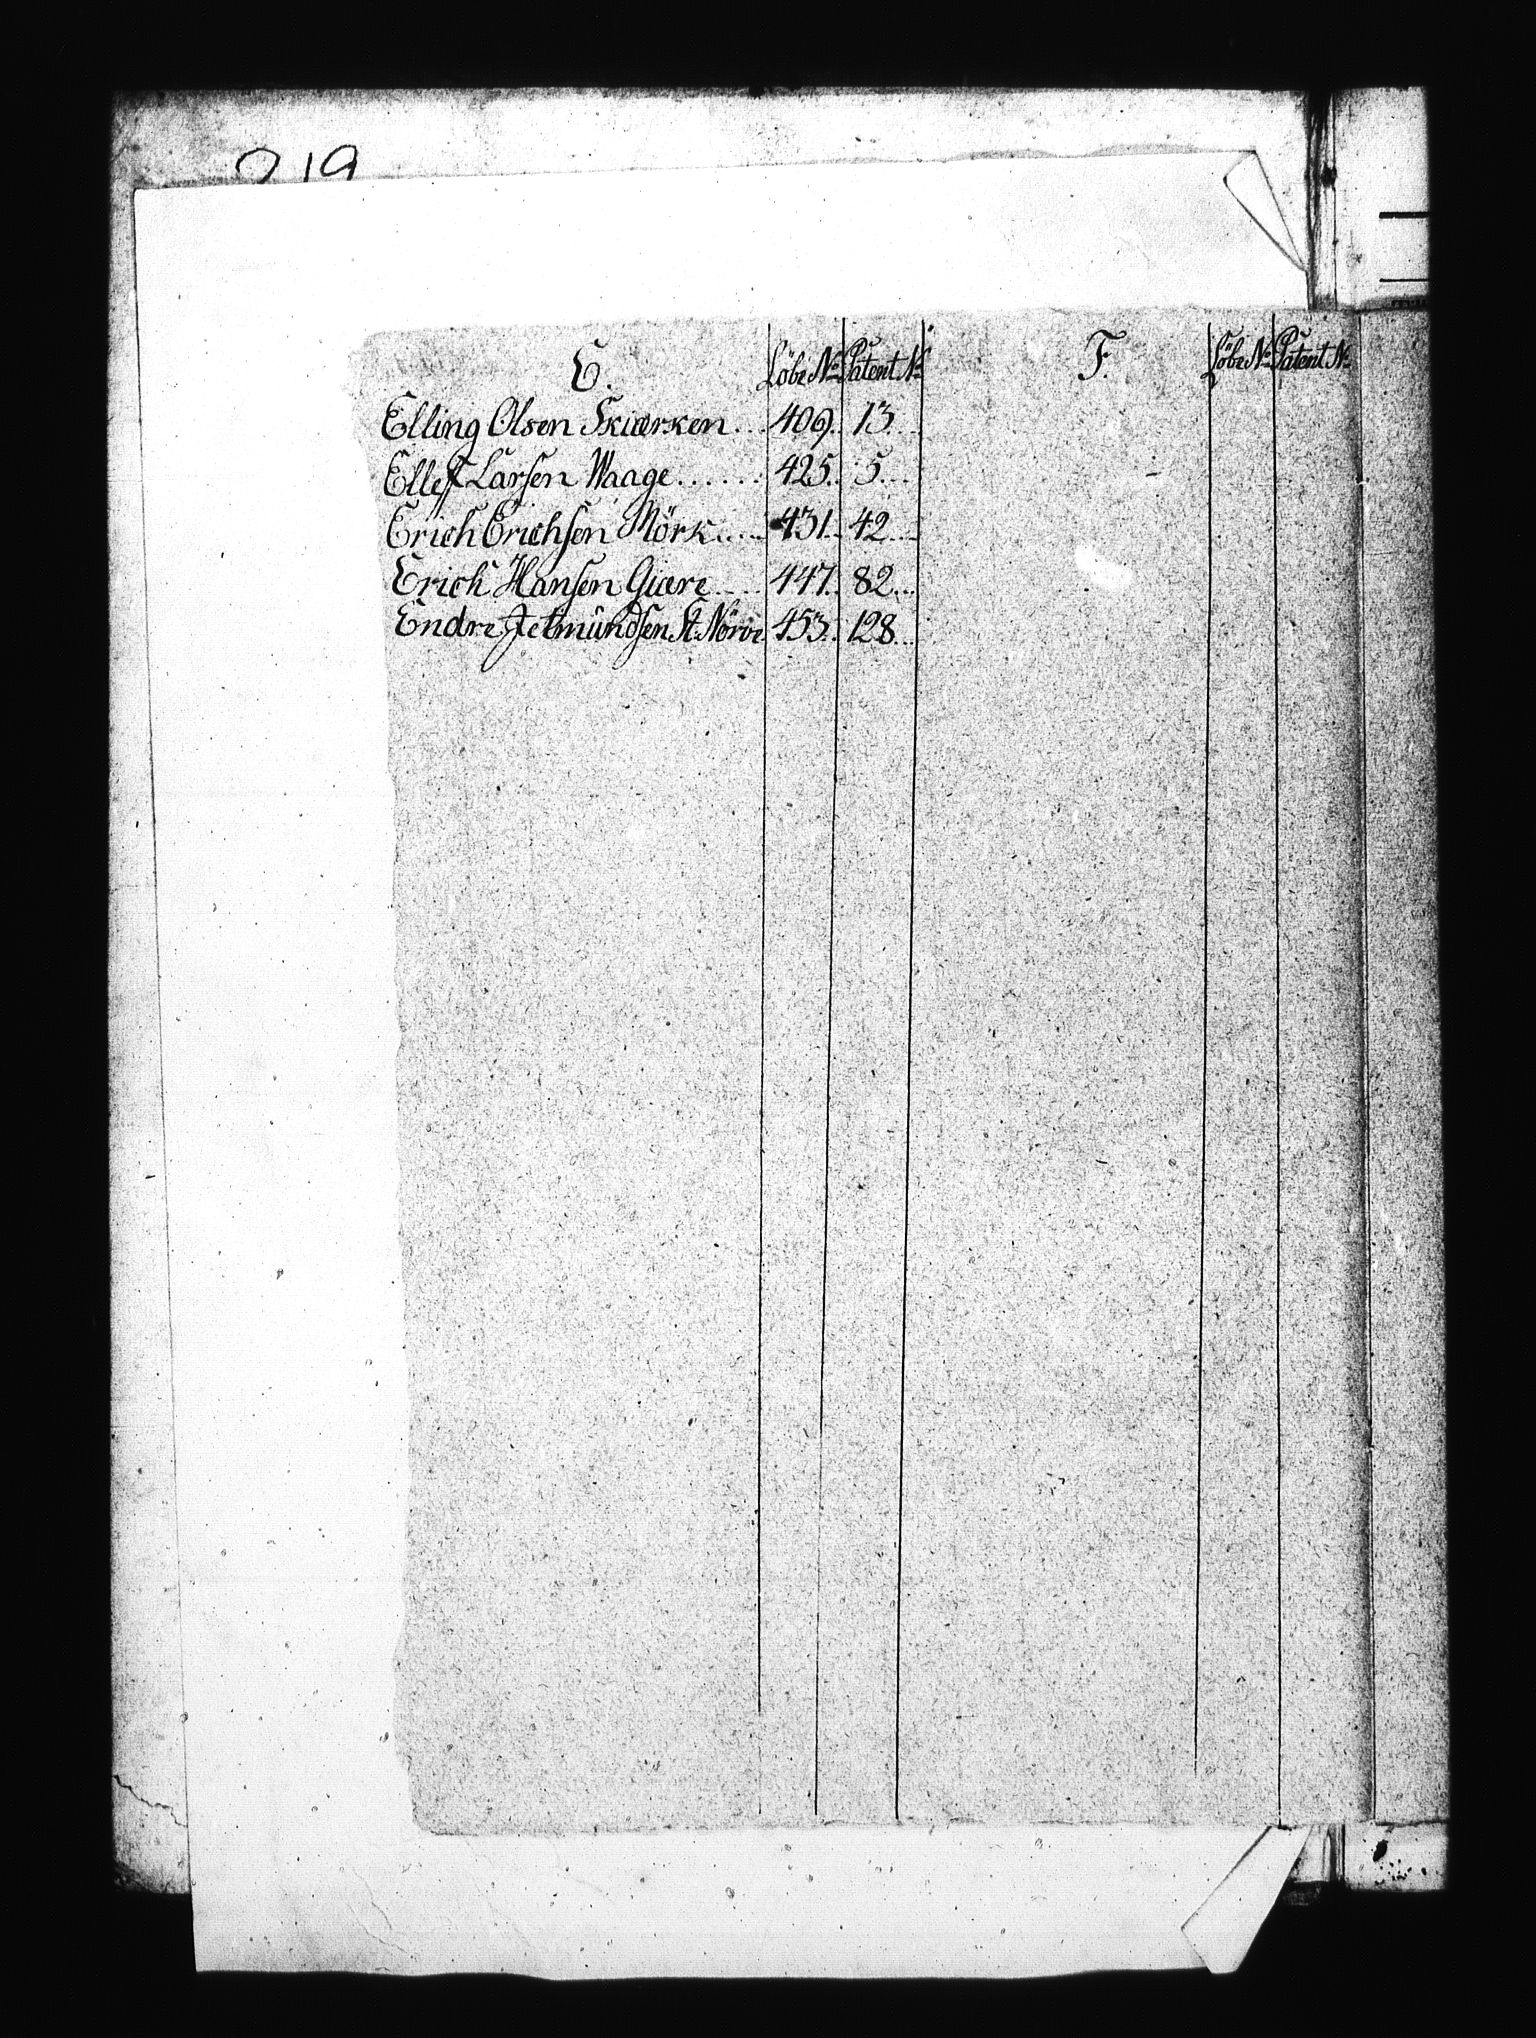 219
E. Löbe No Patent No
Elling Olsen Skiærsen 409. 13.
Ellef Larsen Waage 425. 5.
Erich Erichsen Mörk 431. 42.
Erich Hansen Giære 447. 82.
Endre Jetmundsen St. Nörve 453. 128.
F. Löbe No Patent No